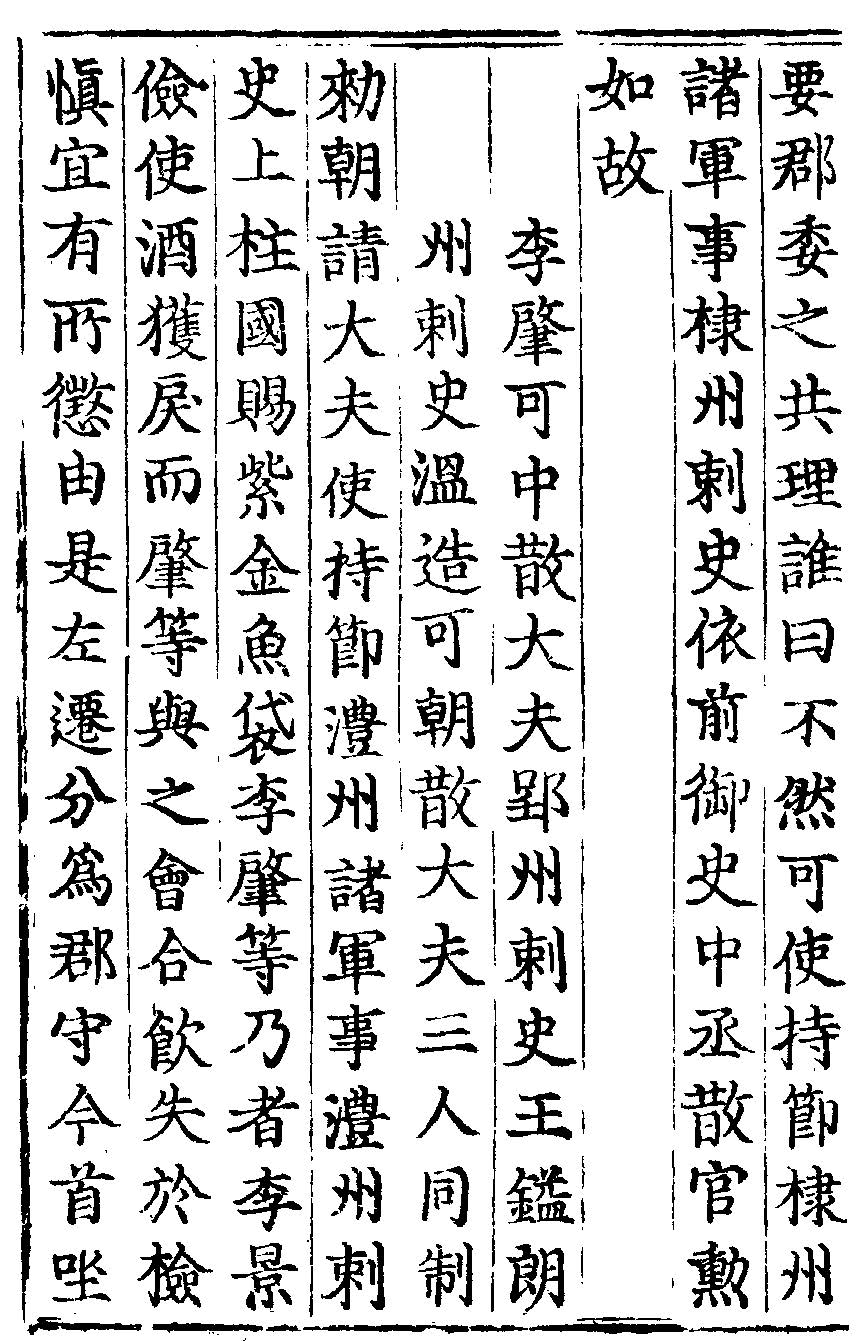 要郡委之共理誰曰不然可使持節棣州
諸軍事棣州刺史依前御史中丞散官勲
如故
李肇可中散大夫郢州刺史王鎰朗
州刺史溫造可朝散大夫三人同制
勑朝請大夫使持節澧州諸軍事澧州刺
史上柱國賜紫金魚袋李肇等乃者李景
儉使酒獲戾而肇等與之會合飮失於檢
愼宜有所懲由是左遷分爲郡守今首坐